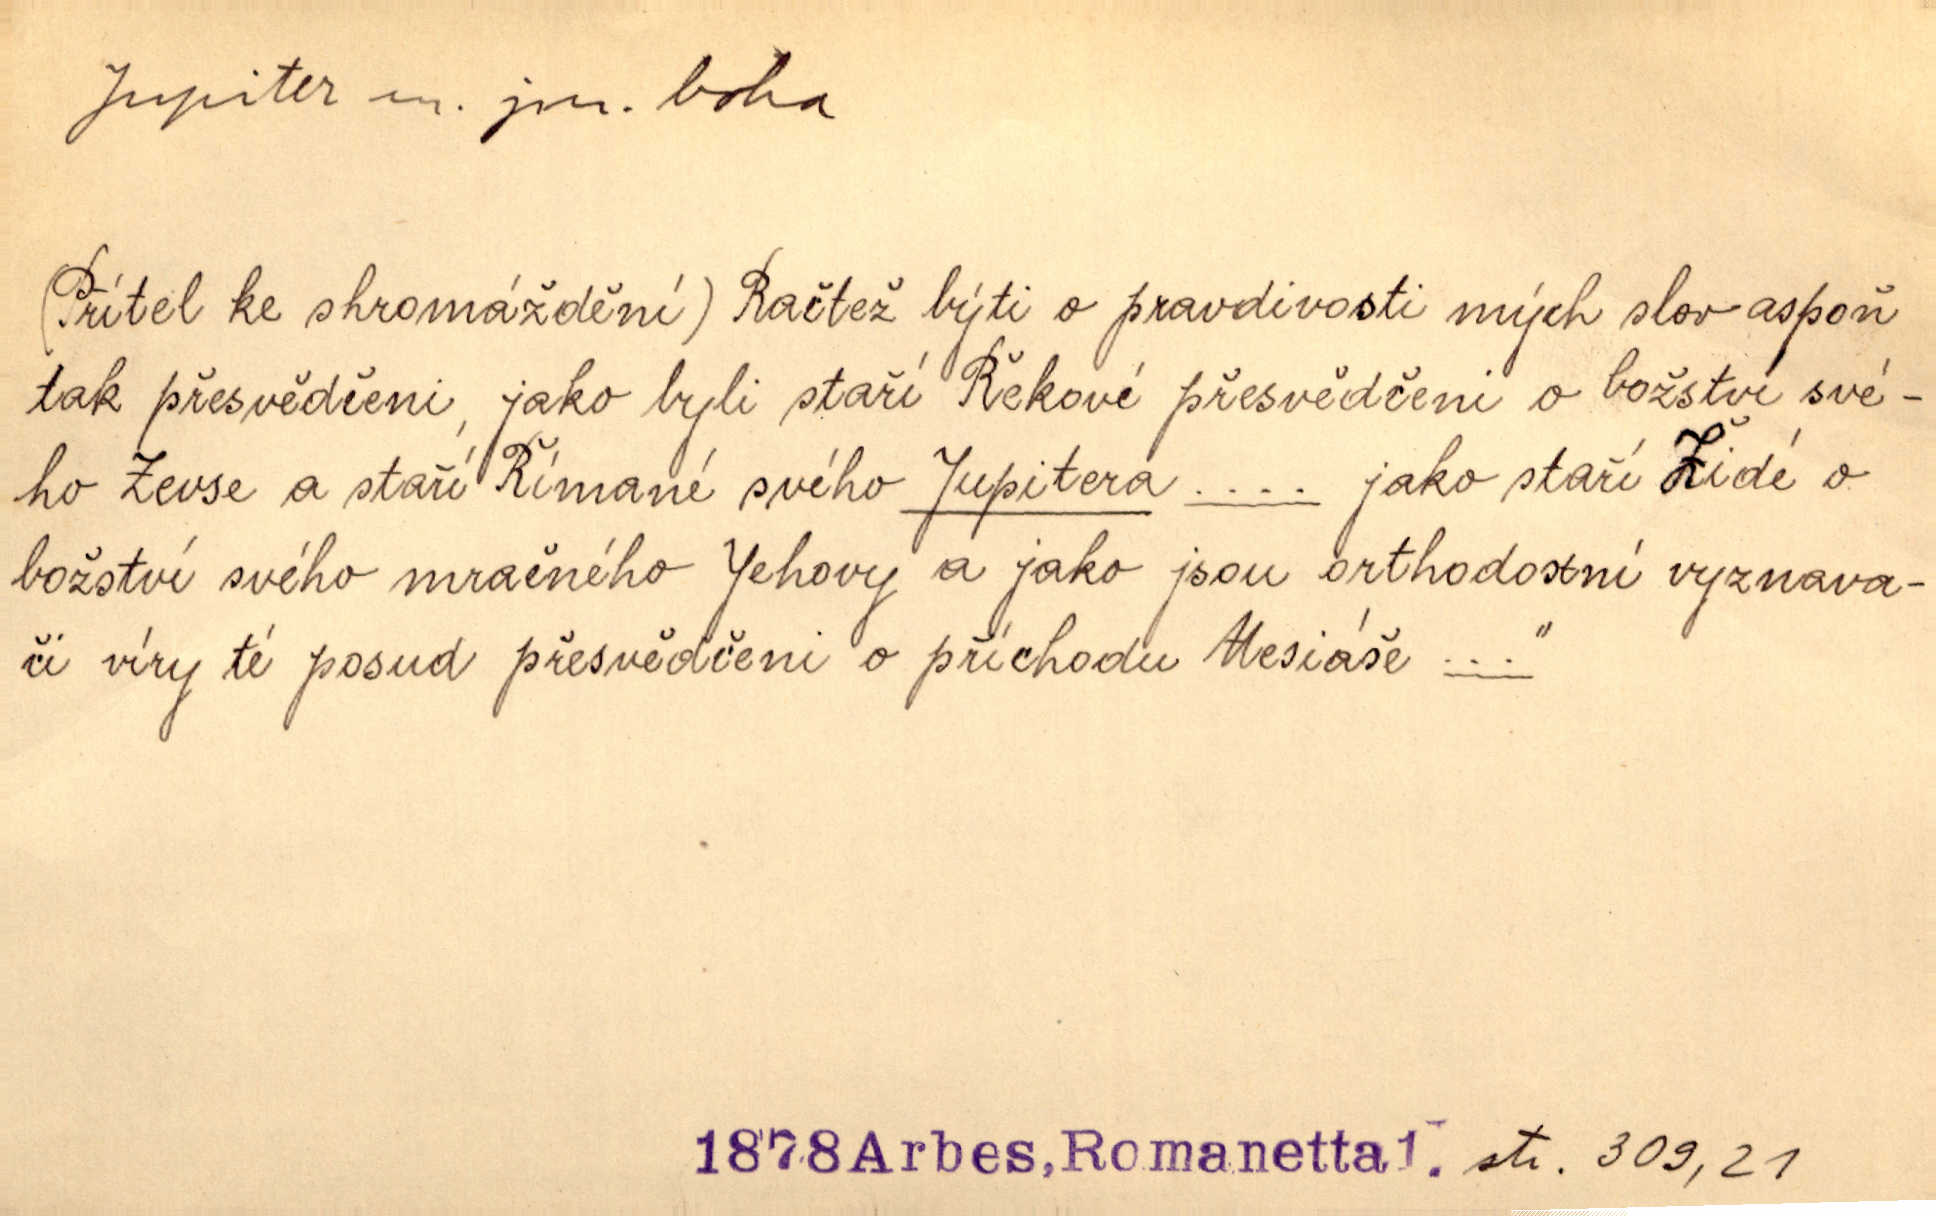 Jupiter m. jm. boha
(Přítel ke shromáždění) Račtež býti o pravdivosti mých slov aspoň
tak přesvědčeni, jako byli staří Řekové přesvědčeni o božství své-
ho Zevse a staří Římané svého Jupitera .... jako staří Židé o
božství svého mračného Jehovy a jako jsou orthodoxní vyznava-
či víry té posud přesvědčeni o příchodu Mesiáše ..."
1878 Arbes, Romanetta 1. str. 309, 21